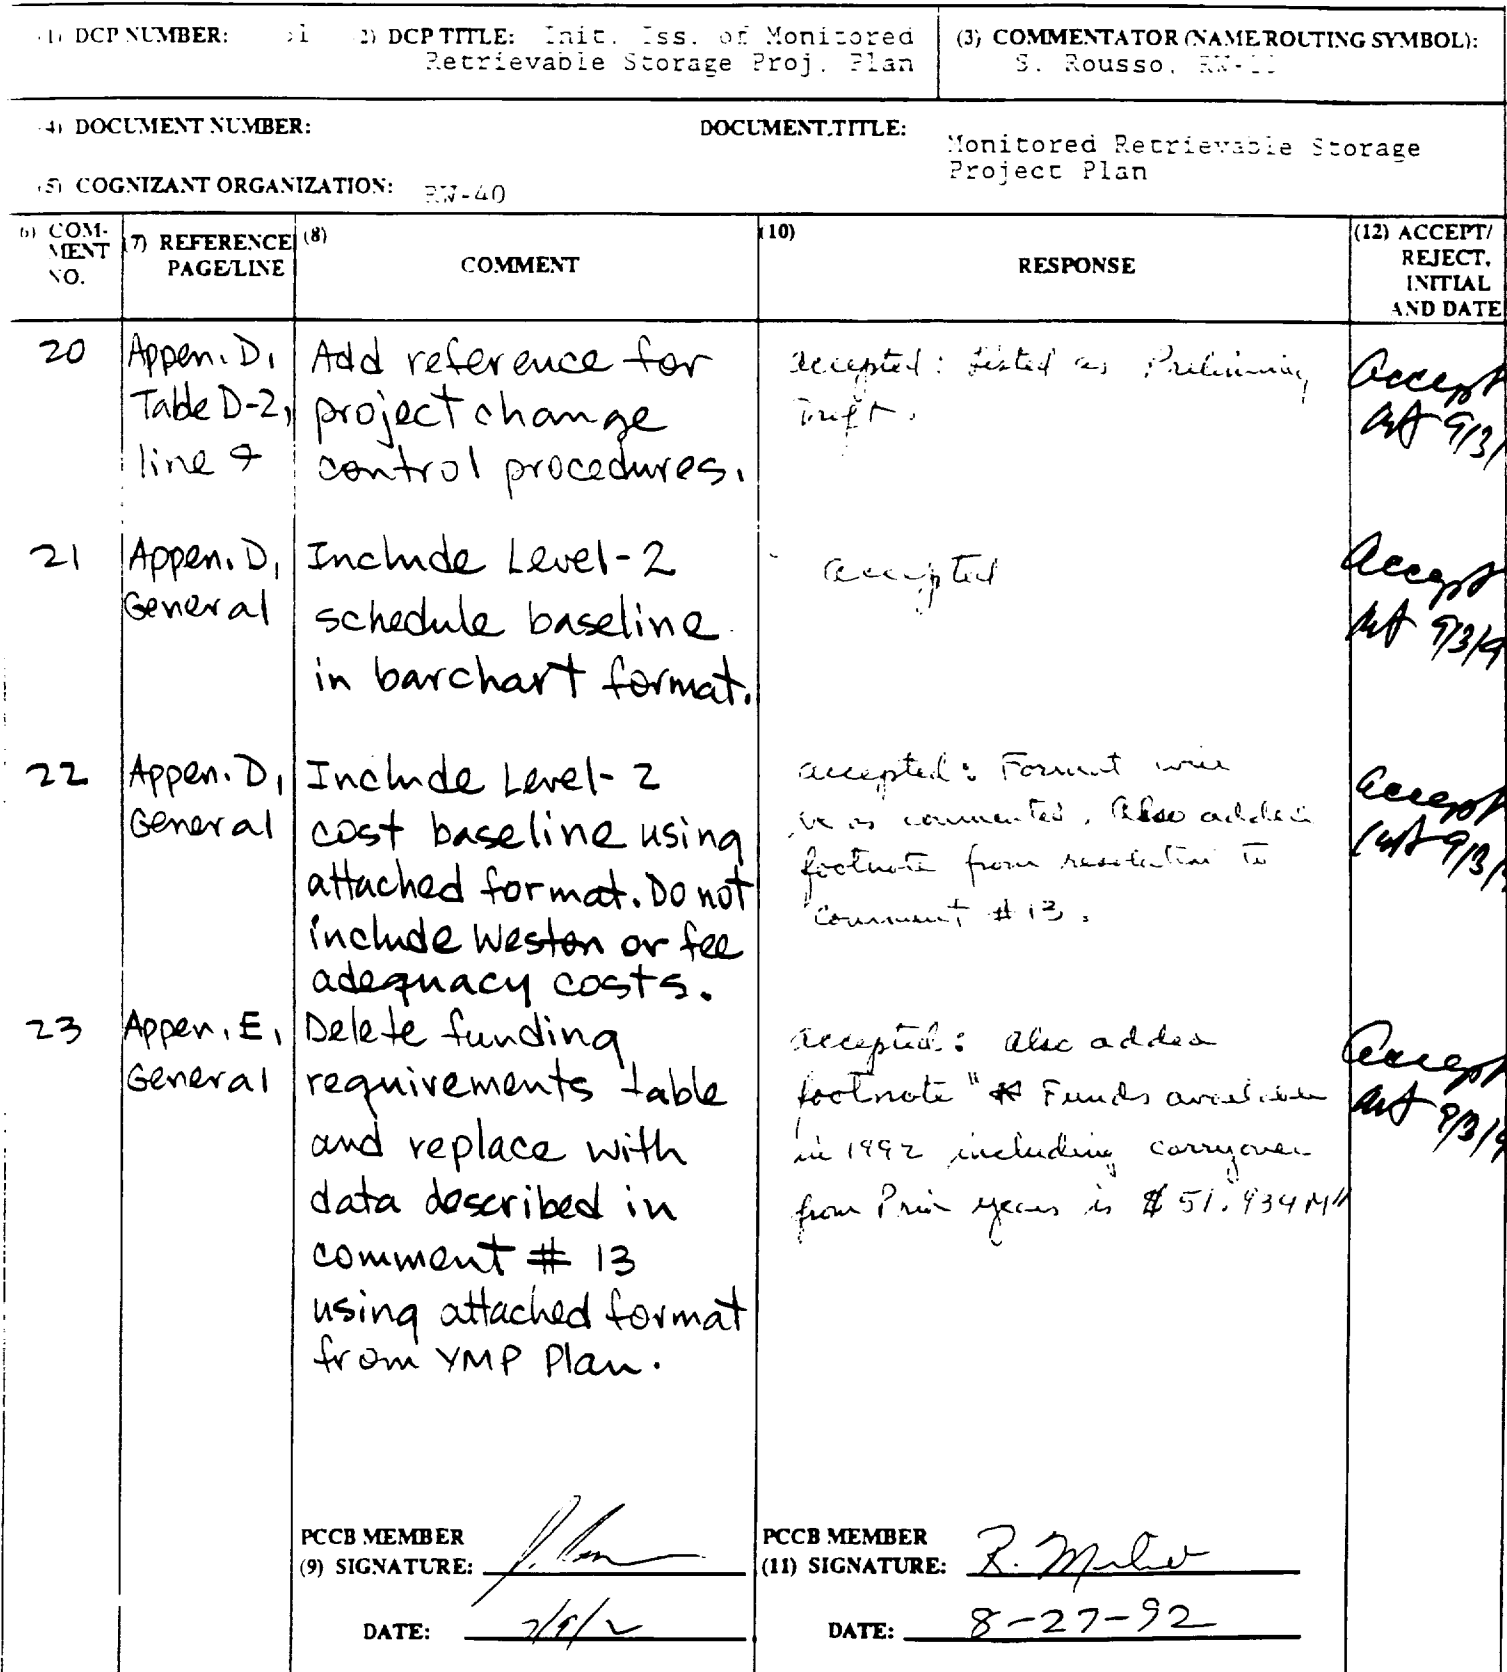 (1) DCP NUMBER: 2) DCP TITLE: Init. Iss. of Monitored
Retrievable Storage Proj. Plan
(3) COMMENTATOR (NAME/ROUTING SYMBOL):
S. Rousso,
(4) DOCUMENT NUMBER: DOCUMENT TITLE:
Monitored Retrievable Storage
Project Plan
(5) COGNIZANT ORGANIZATION: RW-40
6) COM-
MENT
NO.
(7) REFERENCE
PAGE/LINE
(8)
COMMENT
(10)
RESPONSE
(12) ACCEPT/
REJECT,
INITIAL
AND DATE
20
Appen. D,
Table D-2,
line
Add reference for
project change
control procedures.
accepted: Listed as Preliminary
Draft.
Accept
9/3/
21
Appen. D,
General
Include Level-2
schedule baseline
in barchart format.
accepted
Accept
9/3/9
22
Appen. D,
General
Include Level-2
cost baseline using
attached format. Do not
include Weston or fee
adequacy costs.
accepted: Format
as commented. Also added
footnote from resolution to
comment #13.
Accept
9/3/
23
Appen. E,
General
Delete funding
requirements table
and replace with
data described in
comment # 13
using attached format
from YMP Plan.
accepted: also added
footnote "* Funds available
in 1992 including carryover
from Prior years is $51.934M"
Accept
9/3/9
PCCB MEMBER
(9) SIGNATURE:
DATE:
PCCB MEMBER
(11) SIGNATURE: R.
DATE: 8-27-92